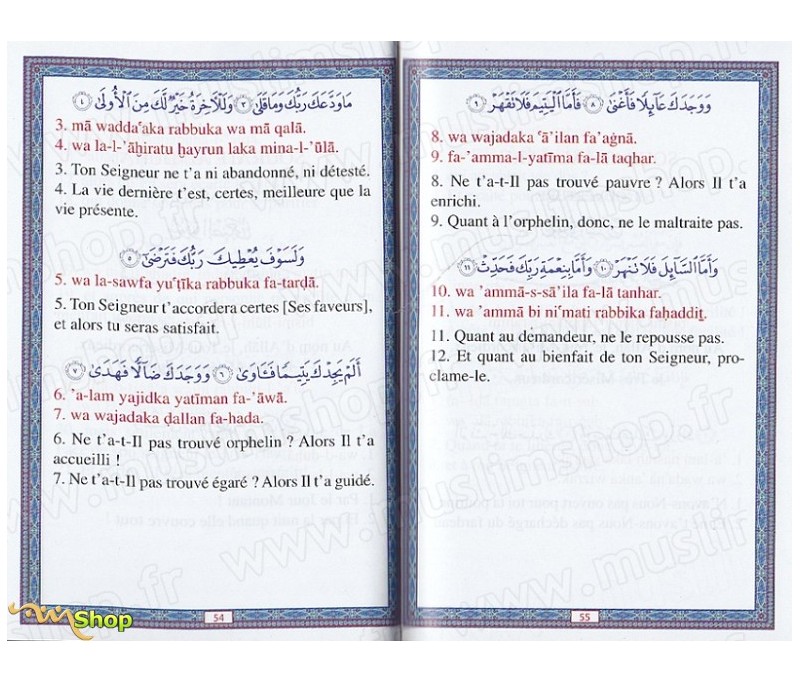 مَا وَدَّعَكَ رَبُّكَ وَمَا قَلَىٰ ٣ وَلَلْآخِرَةُ خَيْرٌ لَّكَ مِنَ الْأُولَىٰ ٤
3. mā wadda‘aka rabbuka wa mā qalā.
4. wa la-l-’āḫiratu ḫayrun laka mina-l-’ūlā.
3. Ton Seigneur ne t’a ni abandonné, ni détesté.
4. La vie dernière t’est, certes, meilleure que la
vie présente.
وَلَسَوْفَ يُعْطِيكَ رَبُّكَ فَتَرْضَىٰ ٥
5. wa la-sawfa yu‘ṭīka rabbuka fa-tarḍā.
5. Ton Seigneur t’accordera certes [Ses faveurs],
et alors tu seras satisfait.
أَلَمْ يَجِدْكَ يَتِيمًا فَـَٔاوَىٰ ٦ وَوَجَدَكَ ضَآلًّا فَهَدَىٰ ٧
6. ’a-lam yajidka yatīman fa-’āwā.
7. wa wajadaka ḍallan fa-hada.
6. Ne t’a-t-Il pas trouvé orphelin ? Alors Il t’a
accueilli !
7. Ne t’a-t-Il pas trouvé égaré ? Alors Il t’a guidé.
54
وَوَجَدَكَ عَآئِلًا فَأَغْنَىٰ ٨ فَأَمَّا الْيَتِيمَ فَلَا تَقْهَرْ ٩
8. wa wajadaka ‘ā’ilan fa’aġnā.
9. fa-’amma-l-yatīma fa-lā taqhar.
8. Ne t’a-t-Il pas trouvé pauvre ? Alors Il t’a
enrichi.
9. Quant à l’orphelin, donc, ne le maltraite pas.
وَأَمَّا السَّآئِلَ فَلَا تَنْهَرْ ١٠ وَأَمَّا بِنِعْمَةِ رَبِّكَ فَحَدِّثْ ١١
10. wa ’ammā-s-sā’ila fa-lā tanhar.
11. wa ’ammā bi ni’mati rabbika faḥaddiṯ.
11. Quant au demandeur, ne le repousse pas.
12. Et quant au bienfait de ton Seigneur, pro-
clame-le.
55
www.muslimshop.fr
Shop